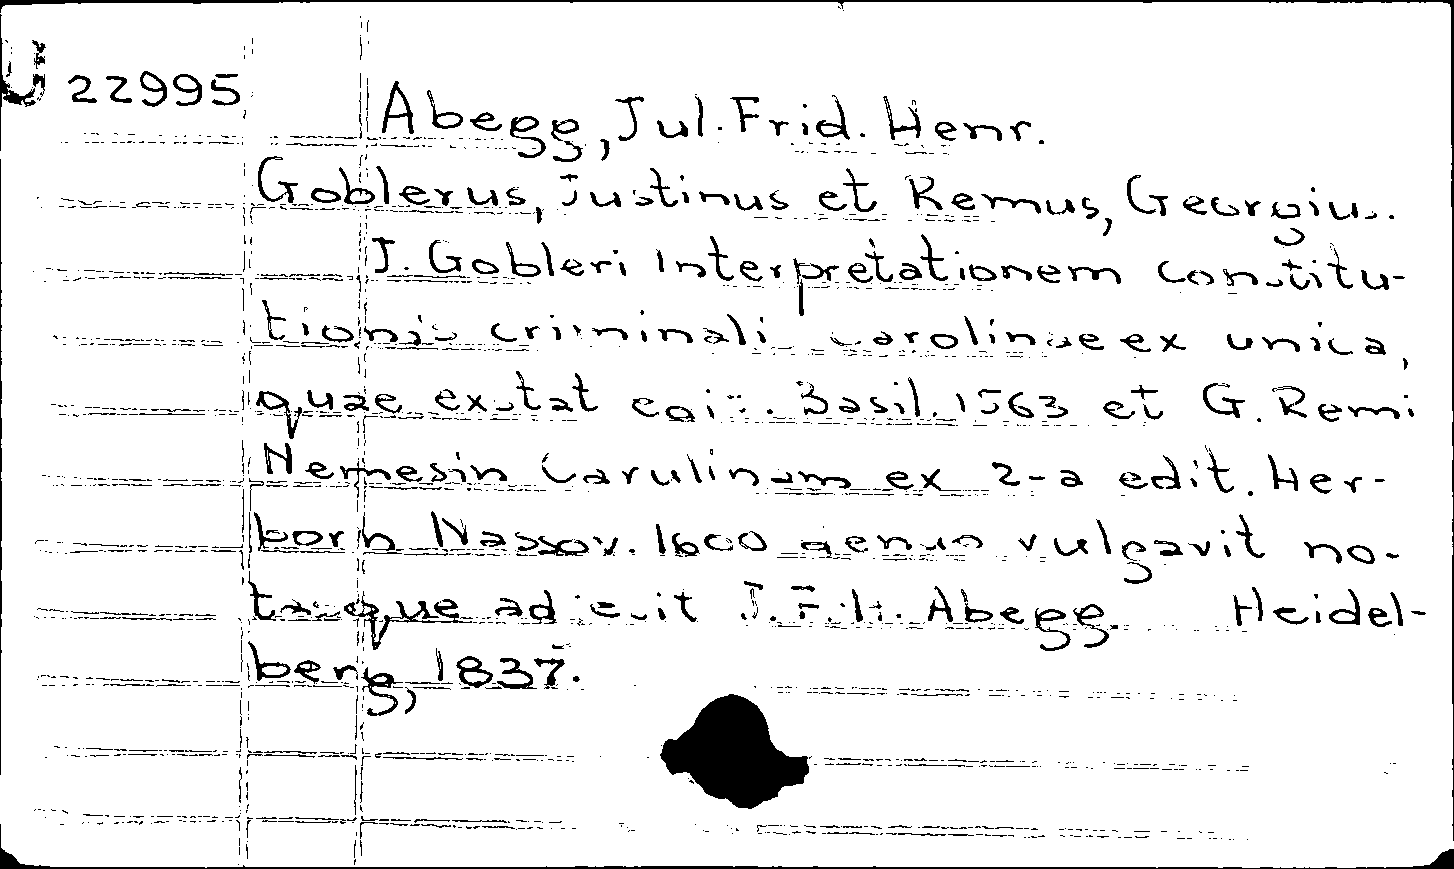 U 22995
Abegg, Jul. Frid. Henr.
Goblerus, Justinus et Remus, Georgius.
J. Gobleri Interpretationem constitu-
tionis criminalis Carolinae ex unica,
quae exstat edit. Basil. 1563 et G. Remi
Nemesin Carulinam ex 2-a edit. Her-
born Nassov. 1600 denuo vulgavit no-
tasque adiecit J. F. H. Abegg. Heidel-
berg, 1837.